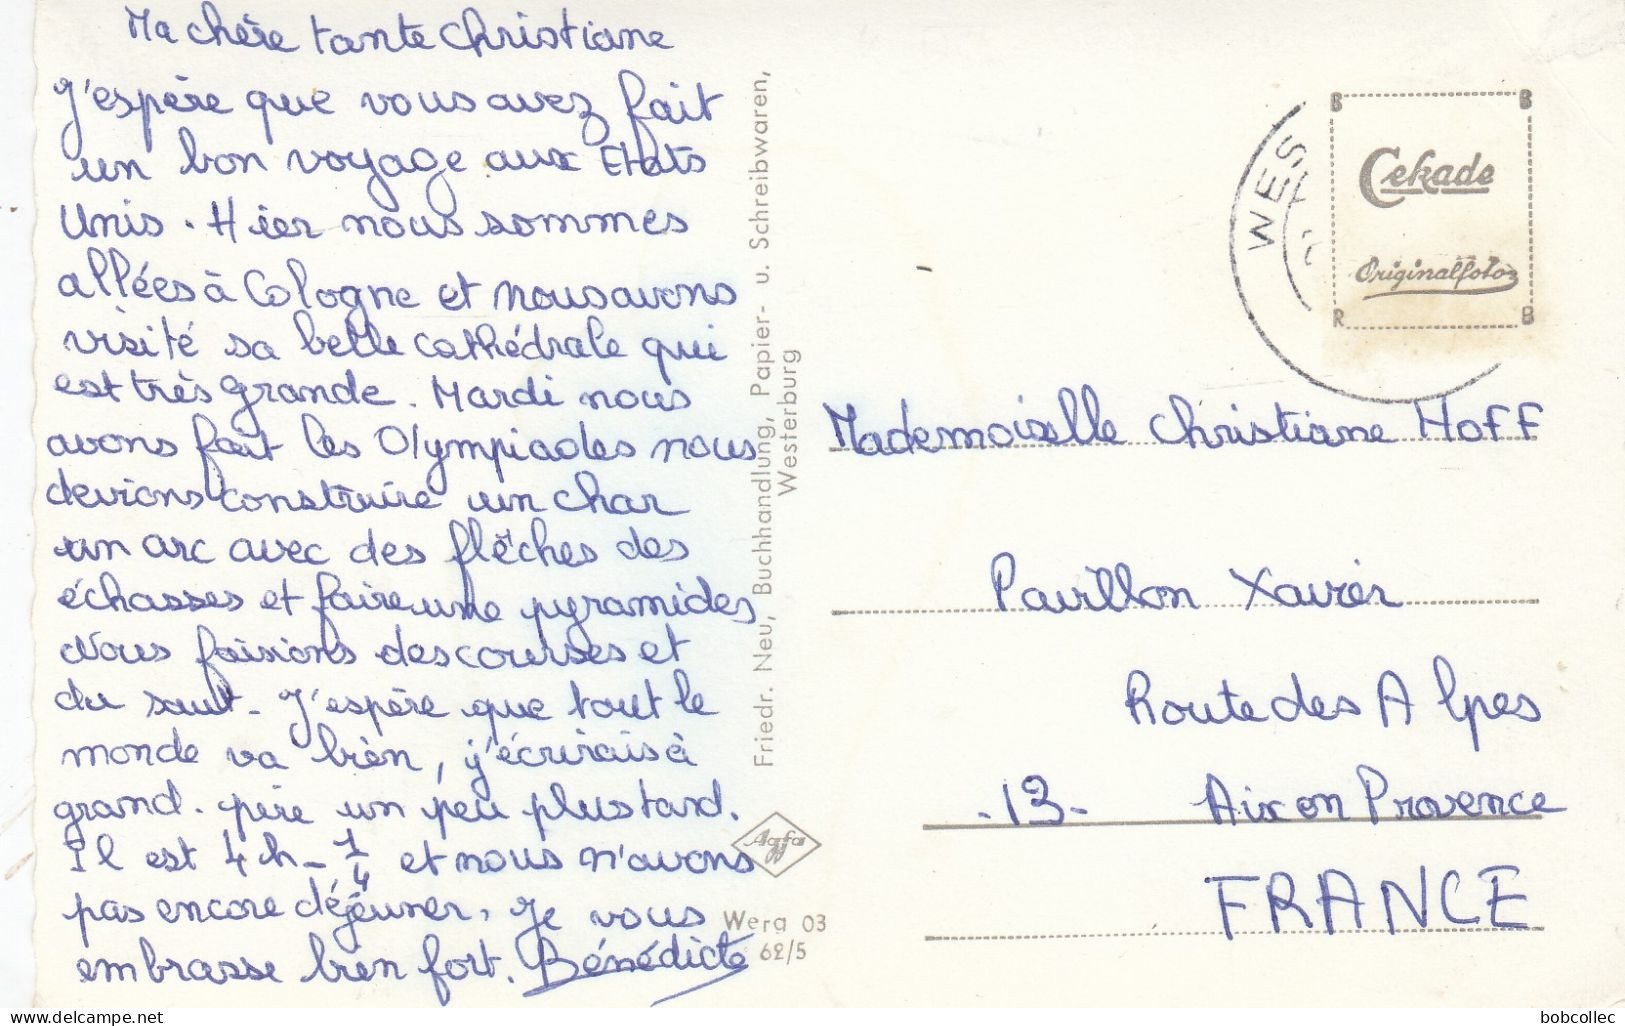 Ma chère tante Christiane
J'espère que vous avez fait
un bon voyage aux Etats
Unis. Hier nous sommes
allées à Cologne et nous avons
visité sa belle cathédrale qui
est très grande. Mardi nous
avons fait les Olympiades nous
devions construire un char
un arc avec des flêches des
échasses et faire une pyramides
Nous faisions des courses et
du saut. J'espère que tout le
monde va bien, j'écrirais à
grand-père un peu plus tard.
Il est 4h - 1/4 et nous n'avons
pas encore déjeuner. Je vous
embrasse bien fort. Bénédicte
Friedr. Neu, Buchhandlung, Papier- u. Schreibwaren,
Westerburg
Agfa
Wera 03
62/5
WES
B B
Cekade
Originalfotos
R B
Mademoiselle Christiane Hoff
Pavillon Xavier
Route des Alpes
-13- Aix en Provence
FRANCE
www.delcampe.net
bobcollec